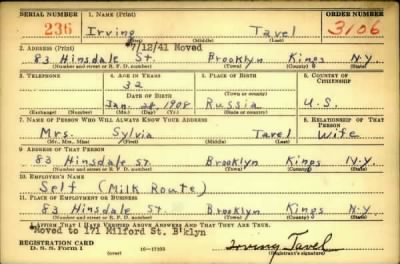 SERIAL NUMBER 1. NAME (Print) ORDER NUMBER
236 Irving Tavel 3106
(First) (Middle) (Last)
2. ADDRESS (Print) 7/12/41 Moved
83 Hinsdale St. Brooklyn Kings N.Y.
(Number and street or R. F. D. number) (Town) (County) (State)
3. TELEPHONE 4. AGE IN YEARS 5. PLACE OF BIRTH 6. COUNTRY OF CITIZENSHIP
32
DATE OF BIRTH (Town or county)
Jan. 28, 1908 Russia U.S.
(Exchange) (Number) (Mo.) (Day) (Yr.) (State or country)
7. NAME OF PERSON WHO WILL ALWAYS KNOW YOUR ADDRESS 8. RELATIONSHIP OF THAT PERSON
Mrs. Sylvia Tavel Wife
(Mr., Mrs., Miss) (First) (Middle) (Last)
9. ADDRESS OF THAT PERSON
83 Hinsdale St. Brooklyn Kings N.Y.
(Number and street or R. F. D. number) (Town) (County) (State)
10. EMPLOYER'S NAME
Self (Milk Route)
11. PLACE OF EMPLOYMENT OR BUSINESS
83 Hinsdale St Brooklyn Kings N.Y.
(Number and street or R. F. D. number) (Town) (County) (State)
I AFFIRM THAT I HAVE VERIFIED ABOVE ANSWERS AND THAT THEY ARE TRUE.
Moved to 171 Milford St. B'klyn
REGISTRATION CARD
D. S. S. FORM 1 (over) 16—17105 Irving Tavel
(Registrant's signature)